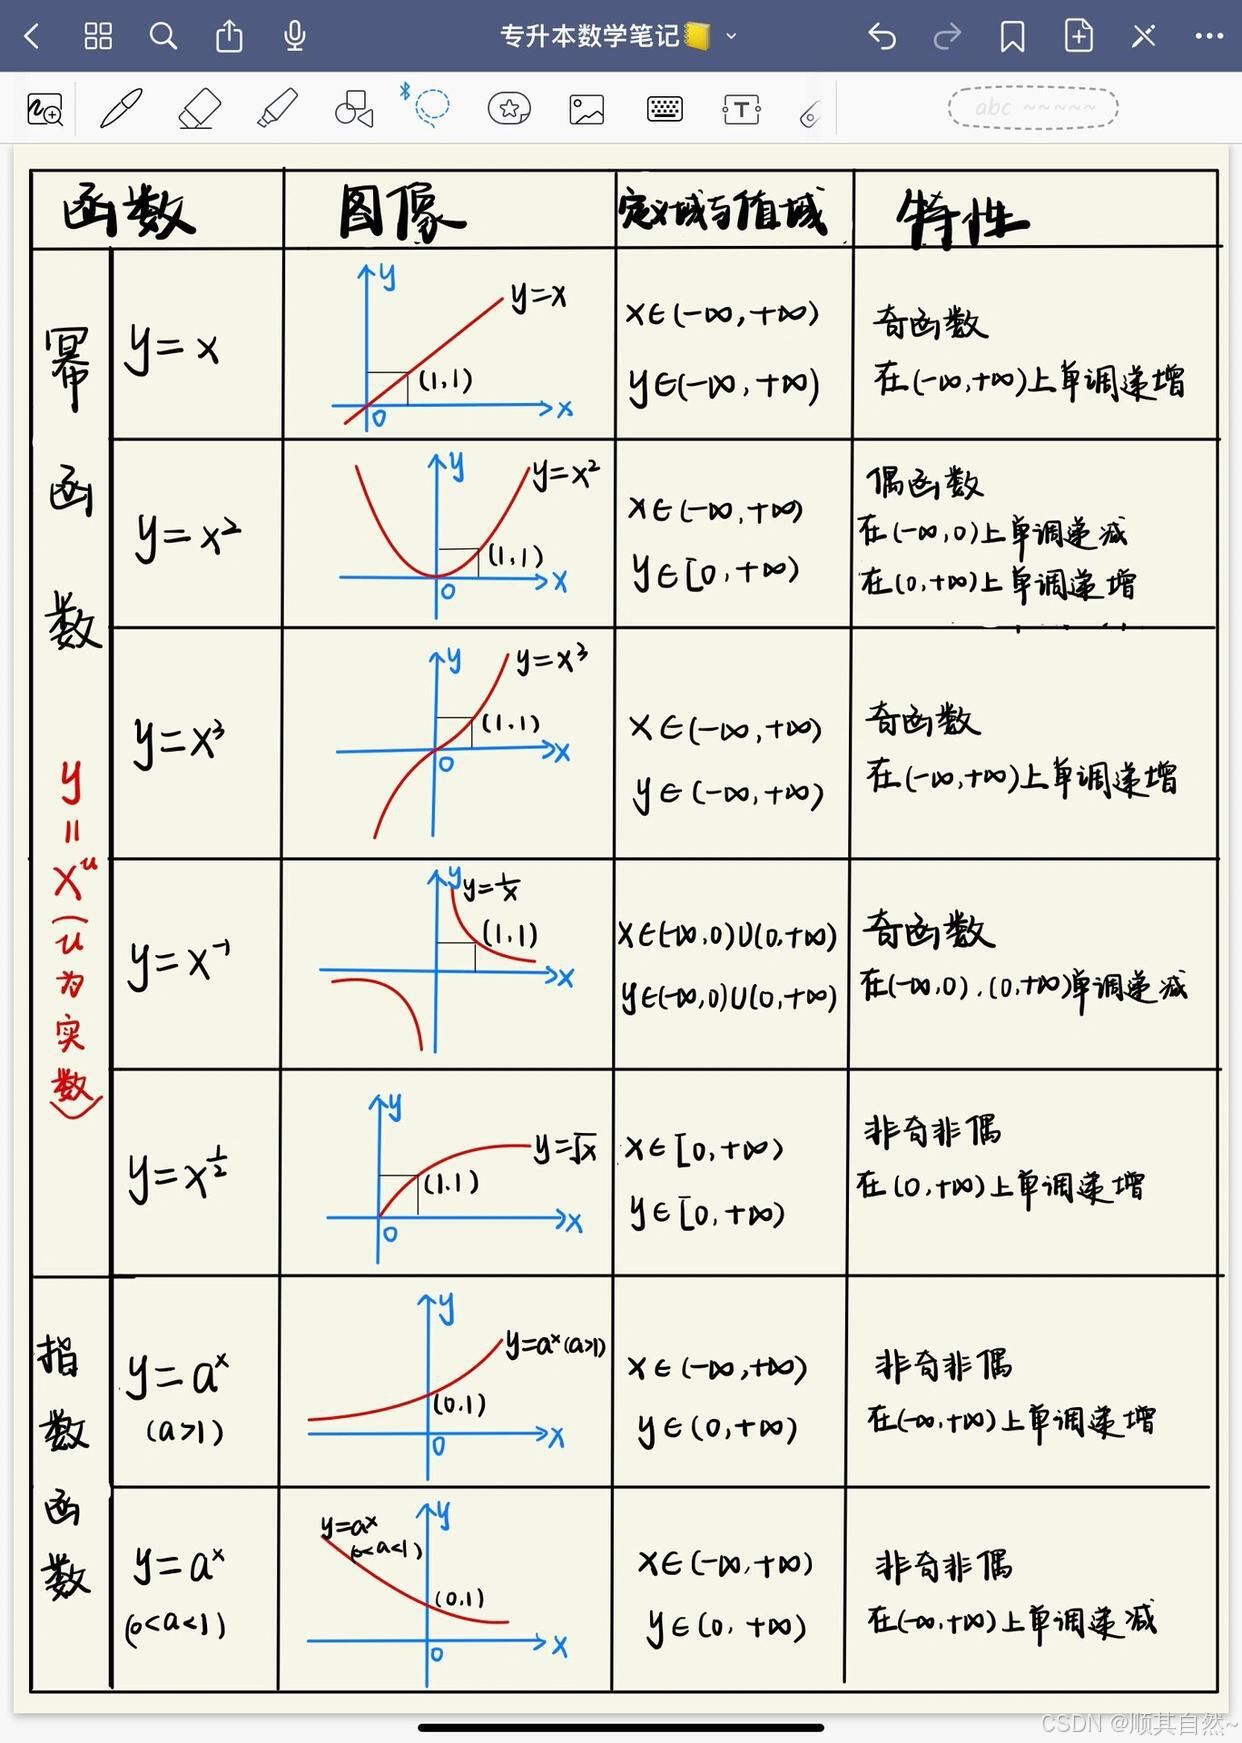 专升本数学笔记
abc ~~~~~
函数 图像 定义域与值域 特性
幂函数 y=xᵘ(u为实数)
y=x
y
y=x
(1,1)
0
x
x∈(-∞,+∞)
y∈(-∞,+∞)
奇函数
在(-∞,+∞)上单调递增
y=x²
y
y=x²
(1,1)
0
x
x∈(-∞,+∞)
y∈[0,+∞)
偶函数
在(-∞,0)上单调递减
在(0,+∞)上单调递增
y=x³
y
y=x³
(1,1)
0
x
x∈(-∞,+∞)
y∈(-∞,+∞)
奇函数
在(-∞,+∞)上单调递增
y=x⁻¹
y
y=1/x
(1,1)
x
x∈(-∞,0)∪(0,+∞)
y∈(-∞,0)∪(0,+∞)
奇函数
在(-∞,0).(0,+∞)单调递减
y=x^(1/2)
y
y=√x
(1.1)
0
x
x∈[0,+∞)
y∈[0,+∞)
非奇非偶
在(0,+∞)上单调递增
指数函数
y=aˣ
(a>1)
y
y=aˣ(a>1)
(0.1)
0
x
x∈(-∞,+∞)
y∈(0,+∞)
非奇非偶
在(-∞,+∞)上单调递增
y=aˣ
(0<a<1)
y
y=aˣ
(0<a<1)
(0,1)
0
x
x∈(-∞,+∞)
y∈(0,+∞)
非奇非偶
在(-∞,+∞)上单调递减
CSDN @顺其自然~